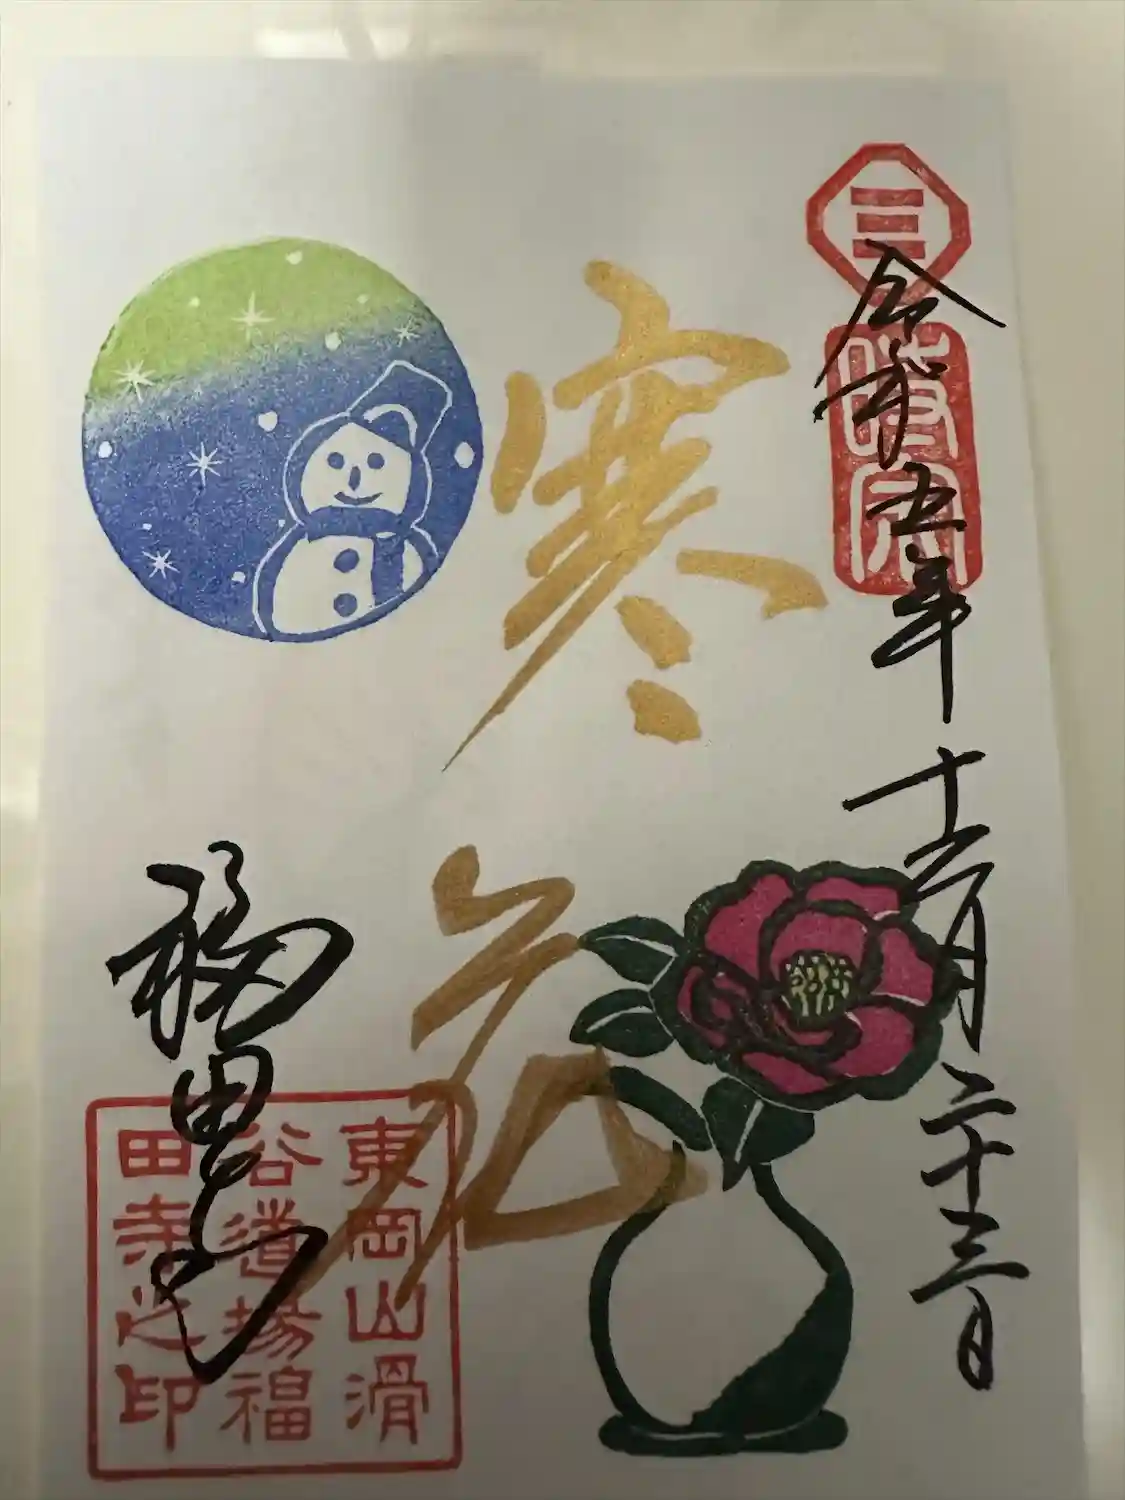 三
時宗
令和五年十二月二十三日
寒花
福田寺
東岡山滑
谷道場福
田寺之印